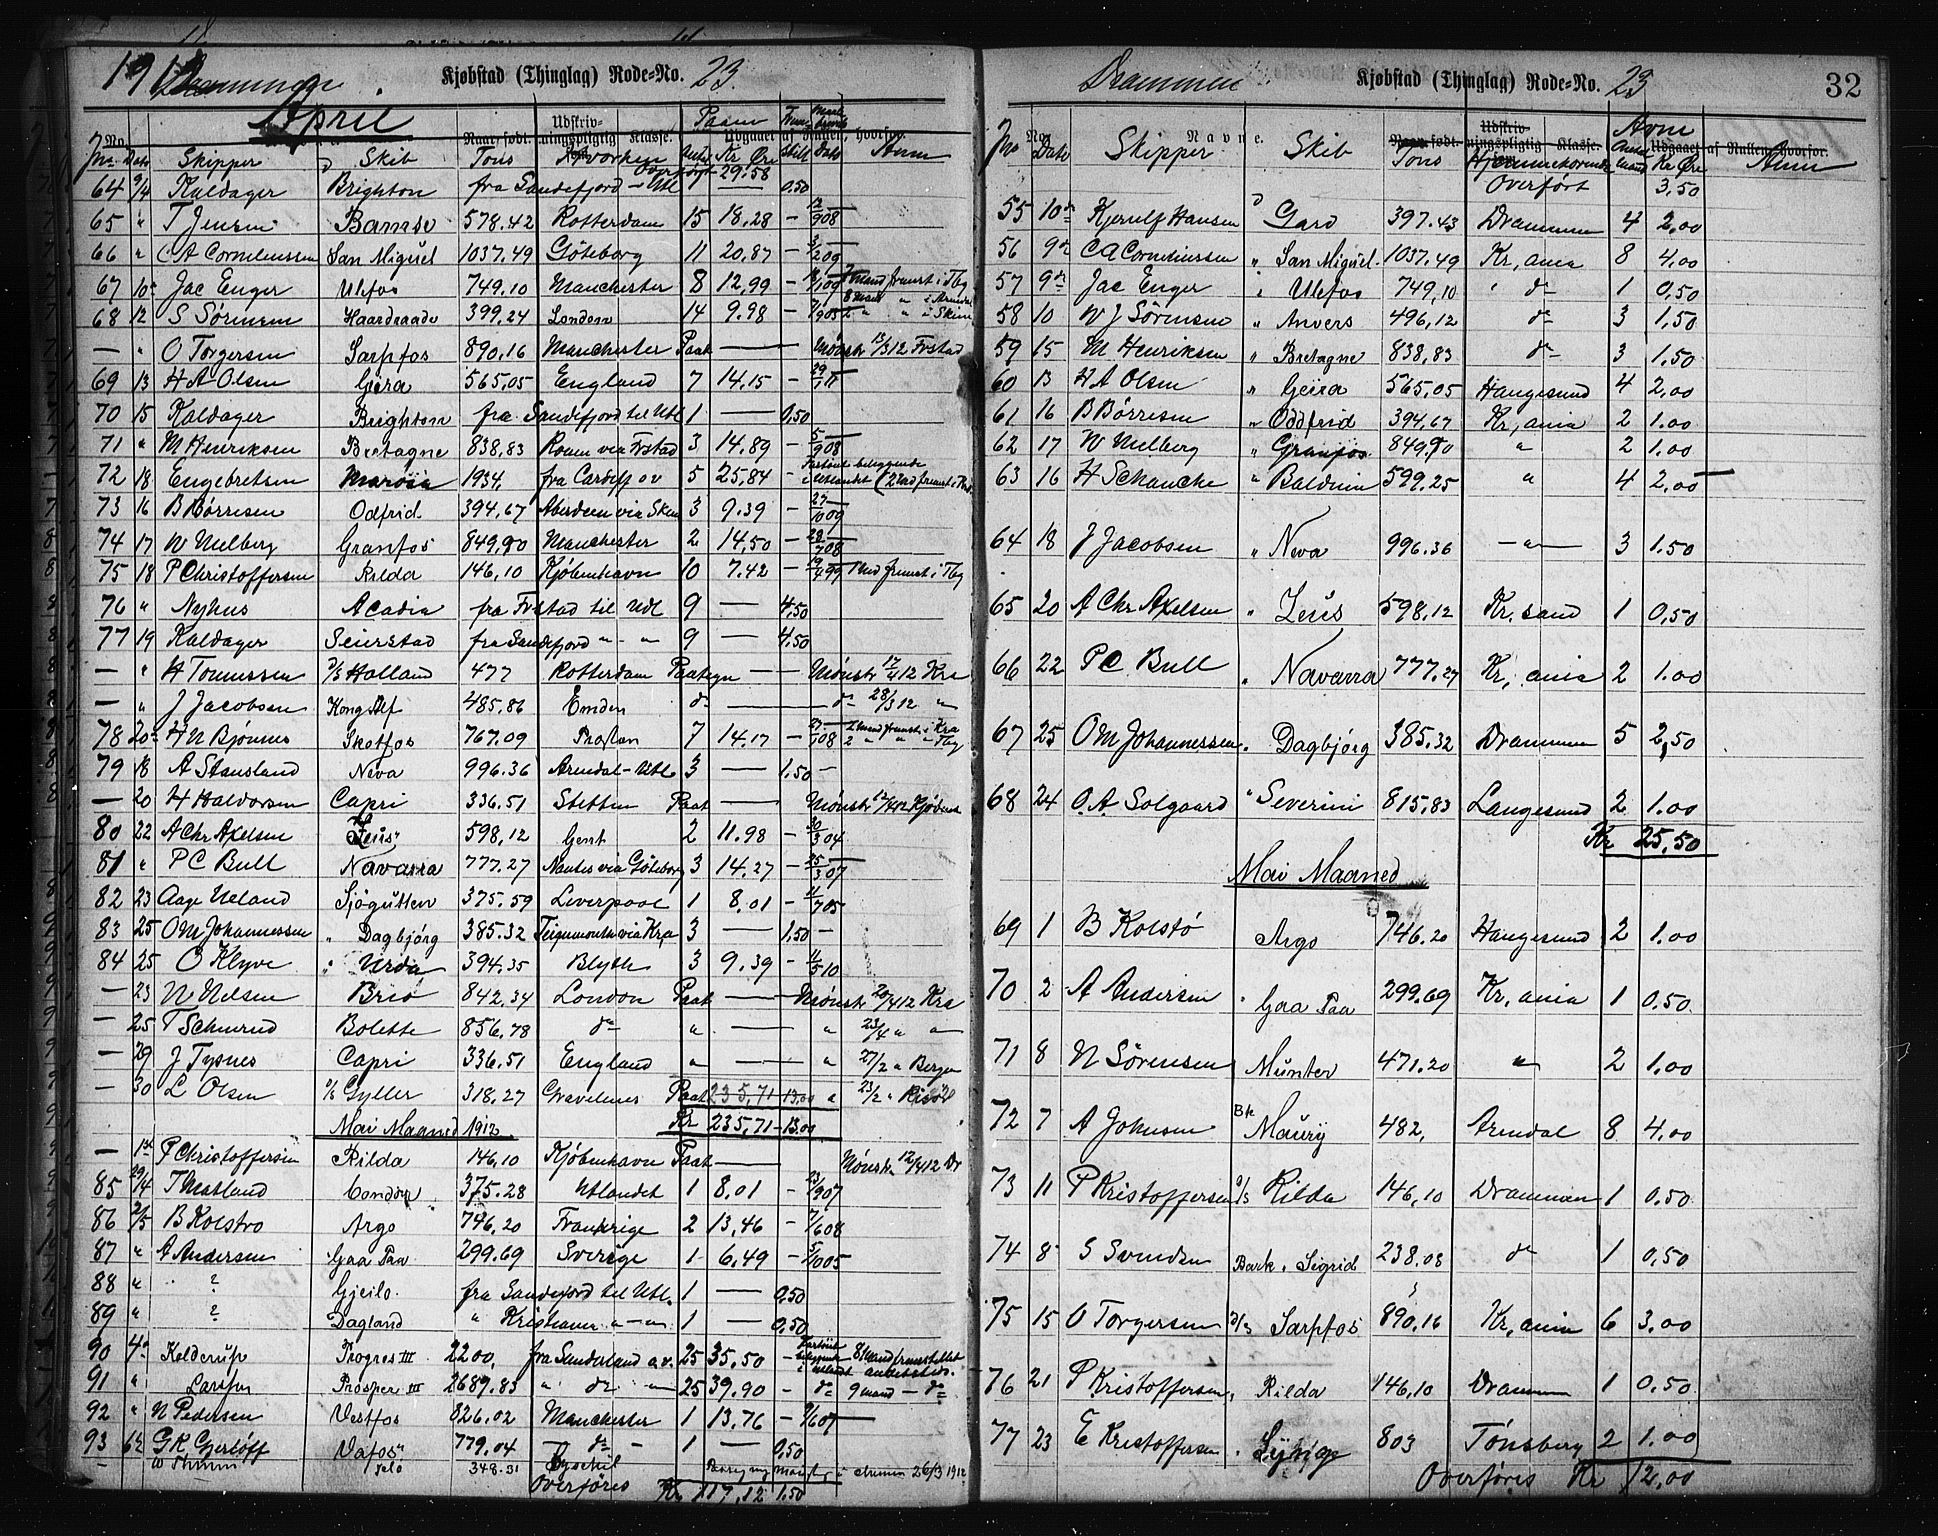 1912 Drammen Kjøbstad (Thinglag) Rode=No. 23.
April
No. Naar født. Udskrivningspligtig Klasse. Udgaaet af Rullen, hvorfor.
No Dato Skipper Skib Tons Hvorhen Paam Antal Kr Øre Anm
Overført 29.58
64 9/4 Kaldager Brighton fra Sandefjord - Utl 1 — 0,50
65 " T Jensen Bamse 578.42 Rotterdam 15 18.28 - 12/908
66 " C A Corneliussen San Miguel 1037.49 Göteborg 11 20,87 - 3/209
67 10 Jac Enger Ulefos 749.10 Manchester 8 12,99 - 18/109 7 Mand fremst i Tbg
68 12 S Sörensen Haardraade 399.24 London 14 9.98 - 7/905
— " O Torgersen Sarpfos 890,16 Manchester Paat — Mønstr 13/312 Frstad
69 13 H A Olsen Geira 565,05 England 7 14,15 - 29/111
70 15 Kaldager Brighton fra Sandefjord til Utl 1 — 0,50
71 " M Henriksen Bretagne 838,83 Rouen via Frstad 3 14.89 - 5/908
72 18 Engebretsen Marosa 1934 fra Cardiff ov 5 25,84 - Fartöiet beliggende i Utlandet
73 16 B Børresen Odfrid 394,67 Aberdeen via Skien 3 9.39 - 27/1009
74 17 W Melberg Granfos 849,90 Manchester 2 14,50 - 28/708
75 18 P Christoffersen Rilda 146,10 Kjøbenhavn 10 7.42 - 19/499 1 Md fremst i Tbg
76 " Nyhus Acadia fra Frstad til Udl 9 — 4,50
77 19 Kaldager Seierstad fra Sandefjord " - " 9 — 4,50
— " H Tonnessen D/S Holland 477 Rotterdam Paategn — Mønstr 17/412 Kra
— " J Jacobsen Kong Alf 485.86 Emden do — do 28/312 "
78 20 H N Bjønnes Skotfos 767.09 7 14.17 - 27/108 2 Mand fremst i Kra 2 " " " Tbg
79 18 A Stausland Neva 996.36 Arendal - Utl 3 — 1.50 -
— 20 H Haldorsen Capri 336.51 Stettin Paat — Mønstr 12/412 Kjøbenh
80 22 A Chr Axelsen Zeus 598,12 Gent 2 11.98 - 30/304
81 " P C Bull Navarra 777.27 Nantes via Göteborg 3 14.27 - 25/307
82 23 Aage Ueland Sjøgutten 375.59 Liverpool 1 8.01 - 11/705
83 25 O M Johannessen " Dagbjörg 385.32 Teignmouth via Kra 3 — 1.50 -
84 25 O Klyve " Urda 394.35 Blyth 3 9.39 - 11/510
— 23 N Nelsen Brio 842,34 London Paat — Mønstr 20/412 Kra
— 25 T Schmrud Bolette 856,78 do " — " 23/4 " "
— 29 J Tysnes Capri 336.51 England " — " 27/2 " Bergen
— 30 L Olsen D/S Gyller 318.27 Gravelenes Paat 235,71 - 13,00 " 23/2 "
Mai Maaned 1912 Kr 235,71 - 13.00
— 1st P Christoffersen Rilda 146,10 Kjøbenhavn Paat — Mønstr 12/412 Dr
85 29/4 T Matland Condor 375.28 Utlandet 1 8.01 - 23/907
86 2/5 B Kolstro Argo 746.20 Frankrige 2 13,46 - 7/608
87 " A Andersen Gaa Paa 299.69 Sverige 1 6,49 - 5/1005
88 " ? Gjeilo. fra Sandefjord til Utl. 1 — 0,50
89 " ? Dagland " Kristiania " - " 1 — 0,50
90 4 Kolderup Progres III 2200, fra Sunderland o.v. 25 35,50 - Fartöiet beliggende i Utlandt 8 Mand fremstillet andetsteds.
91 " Larssen Prosper III 2689.83 " do " 25 39.90 - do 9 mand - do
92 " N Pedersen Vestfos 826,02 Manchester 1 13,76 - 9/607
93 6 G K Gjerløff Vafos 779.04 - do - 1 — 0,50
— 348.31 26/3 1912
Overføres Kr 117,12 1,50
Drammen Kjøbstad (Thinglag) Rode=No. 23 32
No. Navne. Naar født. Udskrivningspligtig Klasse. Udgaaet af Rullen, hvorfor.
No Dato Skipper Skib Tons Hjemmehørende Avm Antal mand Kr Øre Anm
Overført 3,50
55 10 Kjerulf Hansen D Gard 397.43 Drammen 4 2,00
56 9 C A Corneliussen " San Miguel. 1037.49 Kr,ania 8 4,00
57 9 Jac Enger " Ulefos 749,10 " do 1 0,50
58 10 W J Sörensen " Anvers 496,12 do 3 1,50
59 15 M Henriksen " Bretagne 838,83 do 3 1.50
60 13 H A Olsen " Geira 565,05 Haugesund 4 2,00
61 16 B Børresen " Oddfrid 394,67 Kr,ania 2 1.00
62 17 W Melberg " Granfos 849,90 " 2 1.00
63 16 H Schancke " Baldwin 599.25 " 4 2,00
64 18 J Jacobsen " Neva 996.36 — " — 3 1.50
65 20 A Chr Axelsen " Zeus 598,12 Kr,sand 1 0,50
66 22 P C Bull " Navarra 777.27 Kr,ania 2 1.00
67 25 O M Johannessen " Dagbjörg 385.32 Drammen 5 2,50
68 24 O. A. Solgaard " Severin 815,83 Langesund 2 1.00
Kr 25,50
Mai Maaned
69 1 B Kolstø Argo 746.20 Haugesund 2 1.00
70 2 A Andersen " Gaa Paa 299.69 Kr,ania 1 0,50
71 8 N Sørensen Munter 471.20 " 2 1.00
72 7 A Johnsen Bk Maury 482, Arendal 8 4.00
73 11 P Kristoffersen D/S Rilda 146,10 Drammen 1 0,50
74 8 S Svendsen Bark " Sigrid 238.08 do 1 0,50
75 15 O Torgersen D/S Sarpfos 890.16 Kr,ania 6 3,00
76 21 P Kristoffersen " Rilda 146,10 Drammen 1 0.50
77 23 E Kristoffersen " 803 Tønsberg 2 1.00
Overføres Kr 12,00